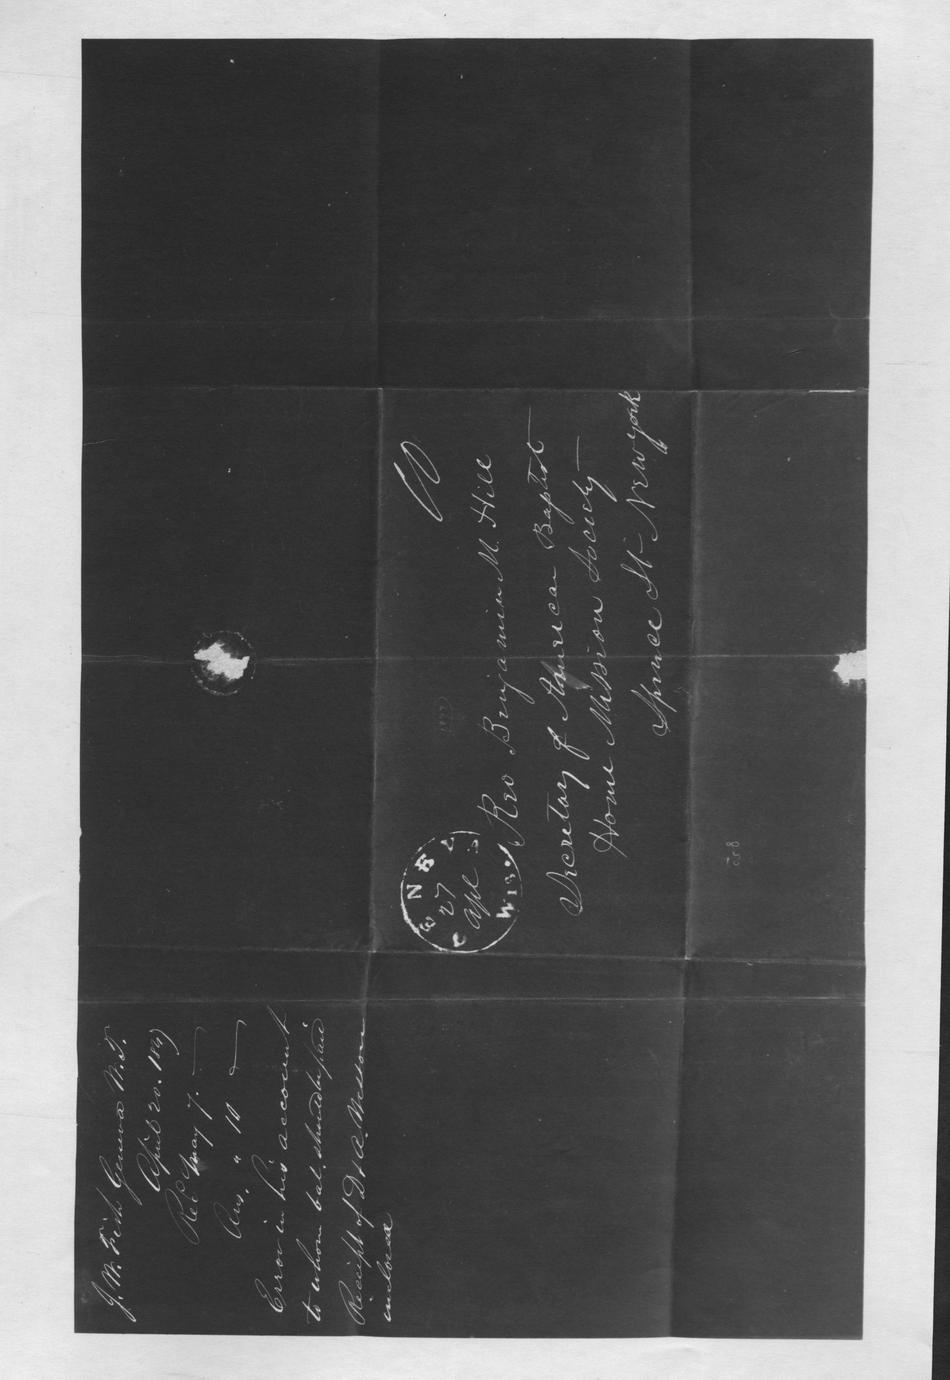 J. W. Fish Geneva W. T.
April 20. 1847
Rec. May 7.
Ans. " 10
Error in his account
to whom bal. should be paid
Receipt of Dr A. Wesson
inclosed
GENEVA
27
Apl
WIS.
10
Rev Benjamin M. Hill
Secretary of American Baptist
Home Mission Society
Spruce St New York